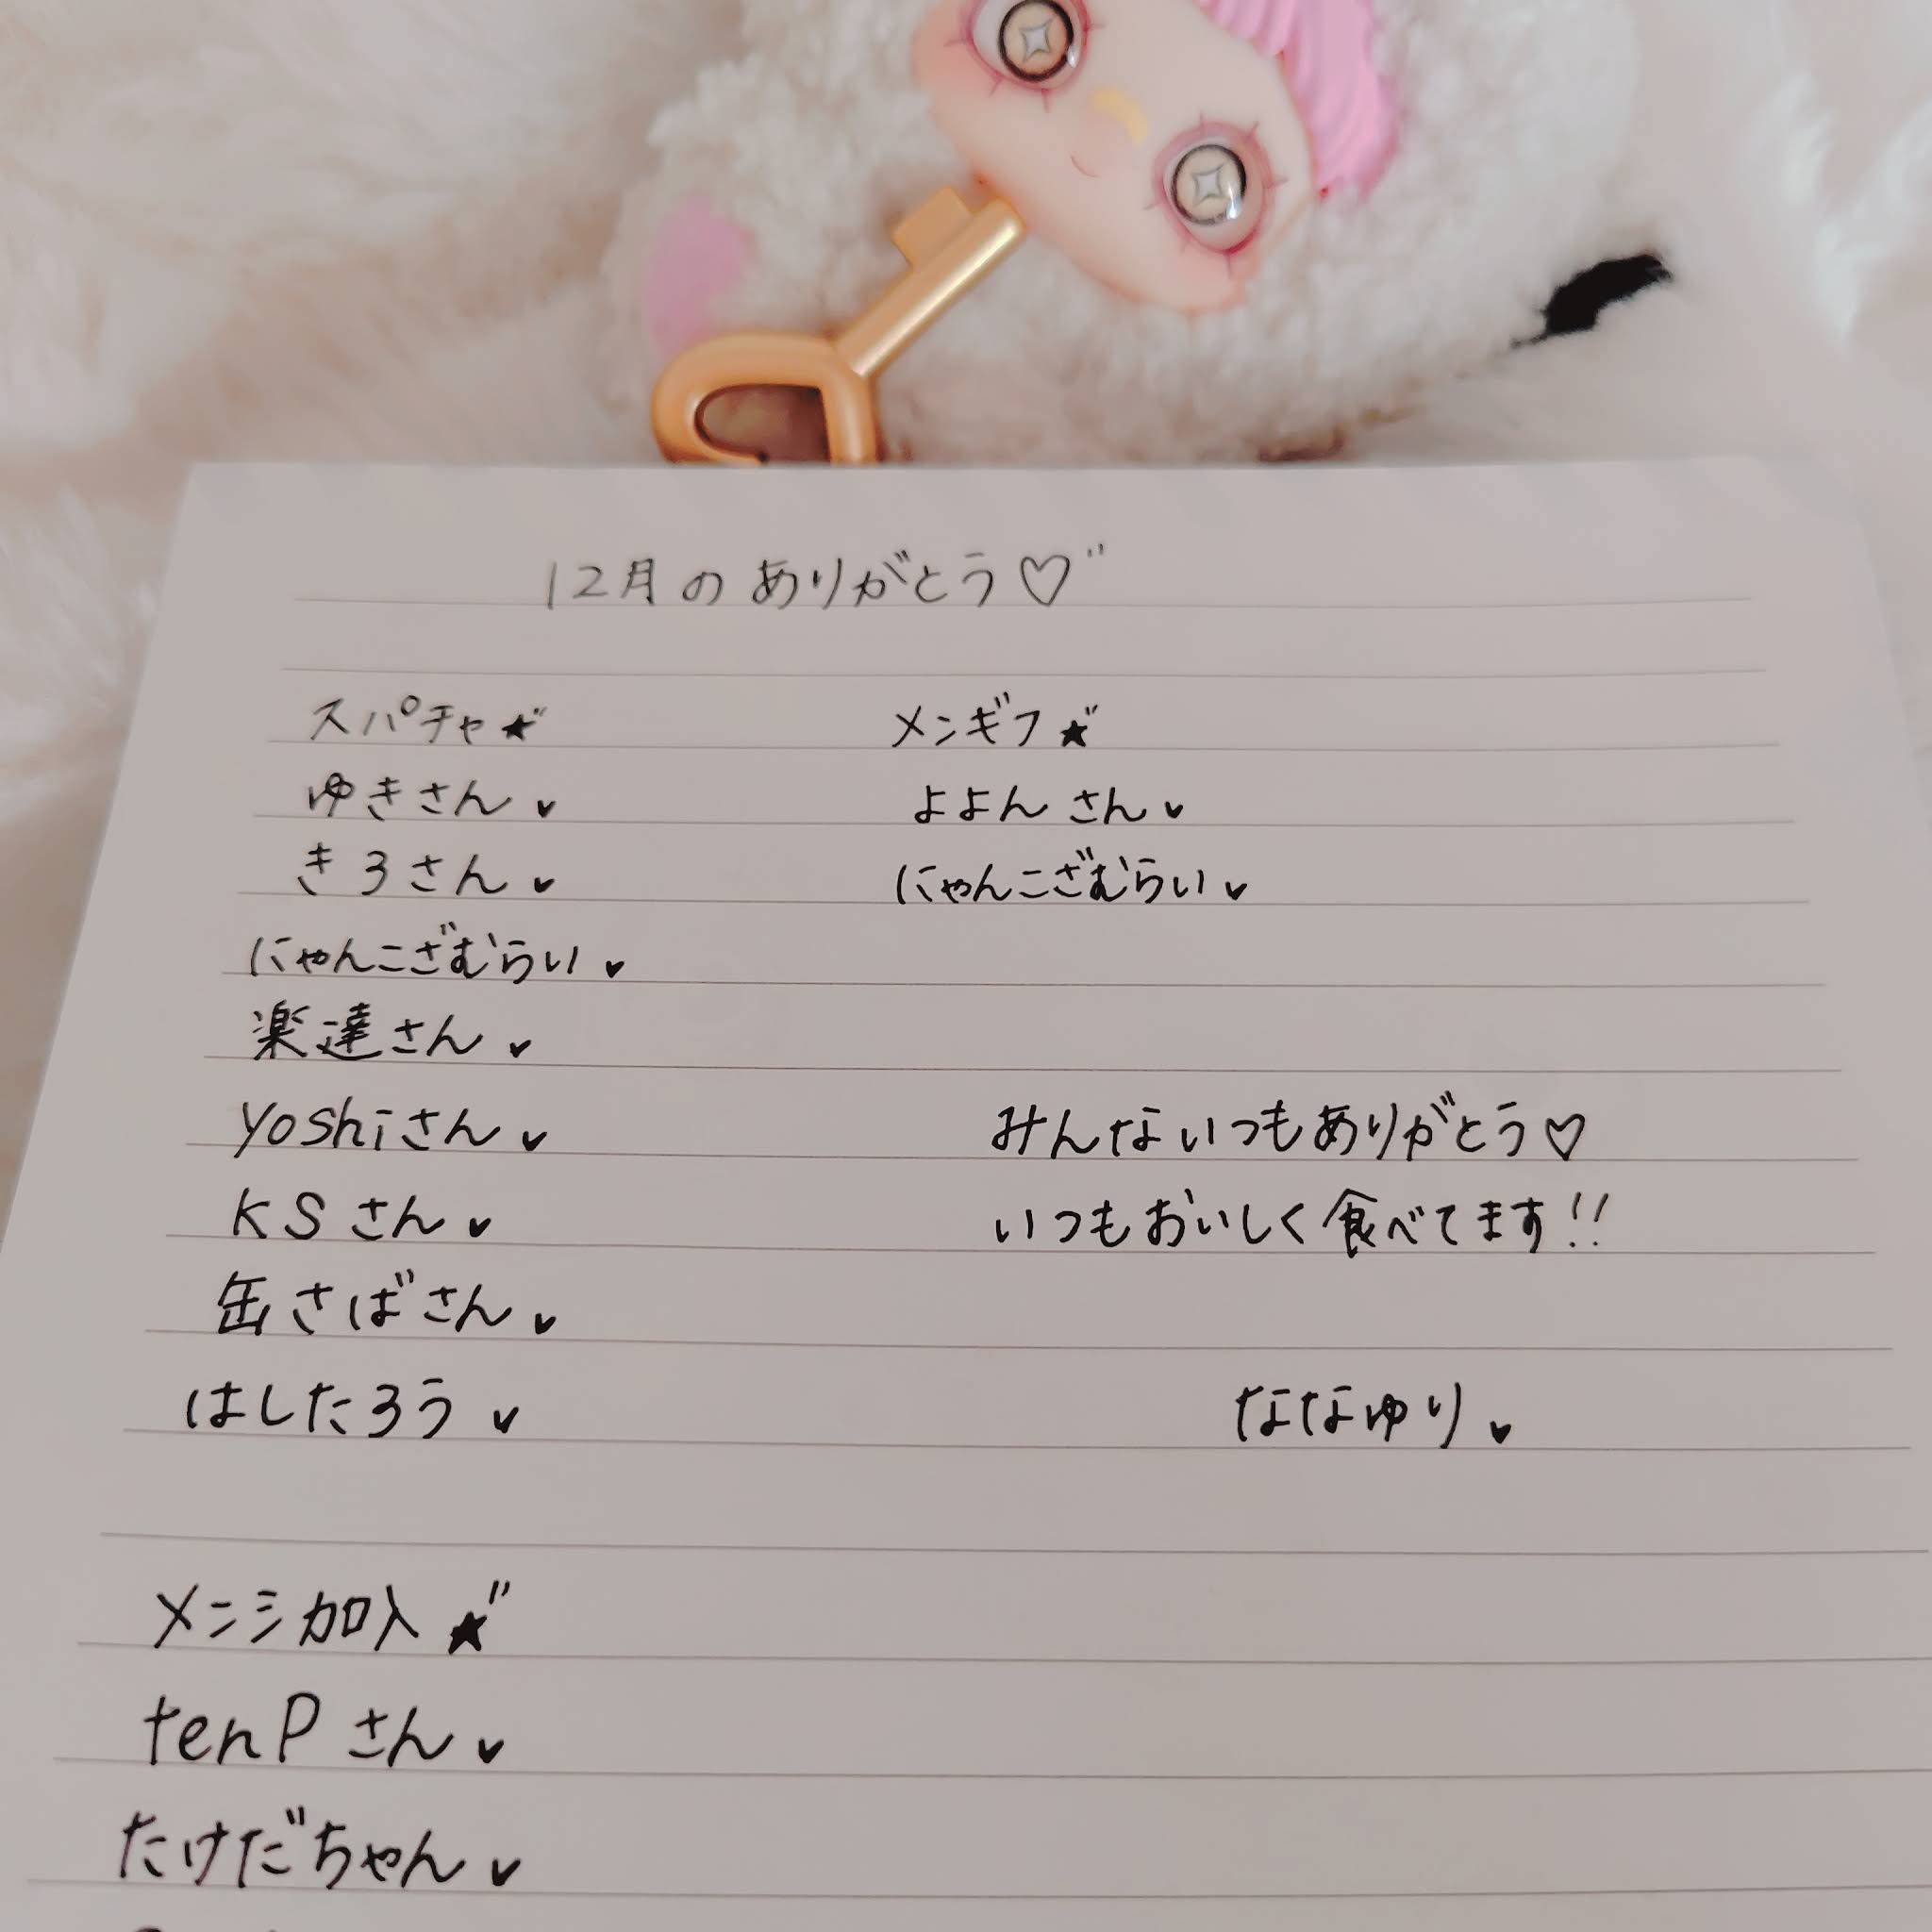 12月のありがとう♡"
スパチャ★"
ゆきさん♥
きろさん♥
にゃんこざむらい♥
楽達さん♥
yoshiさん♥
KSさん♥
缶さばさん♥
はしたろう♥
メンギフ★"
よよんさん♥
にゃんこざむらい♥
みんないつもありがとう♡
いつもおいしく食べてます!!
ななゆり♥
メンシ加入★"
tenPさん♥
たけだちゃん♥